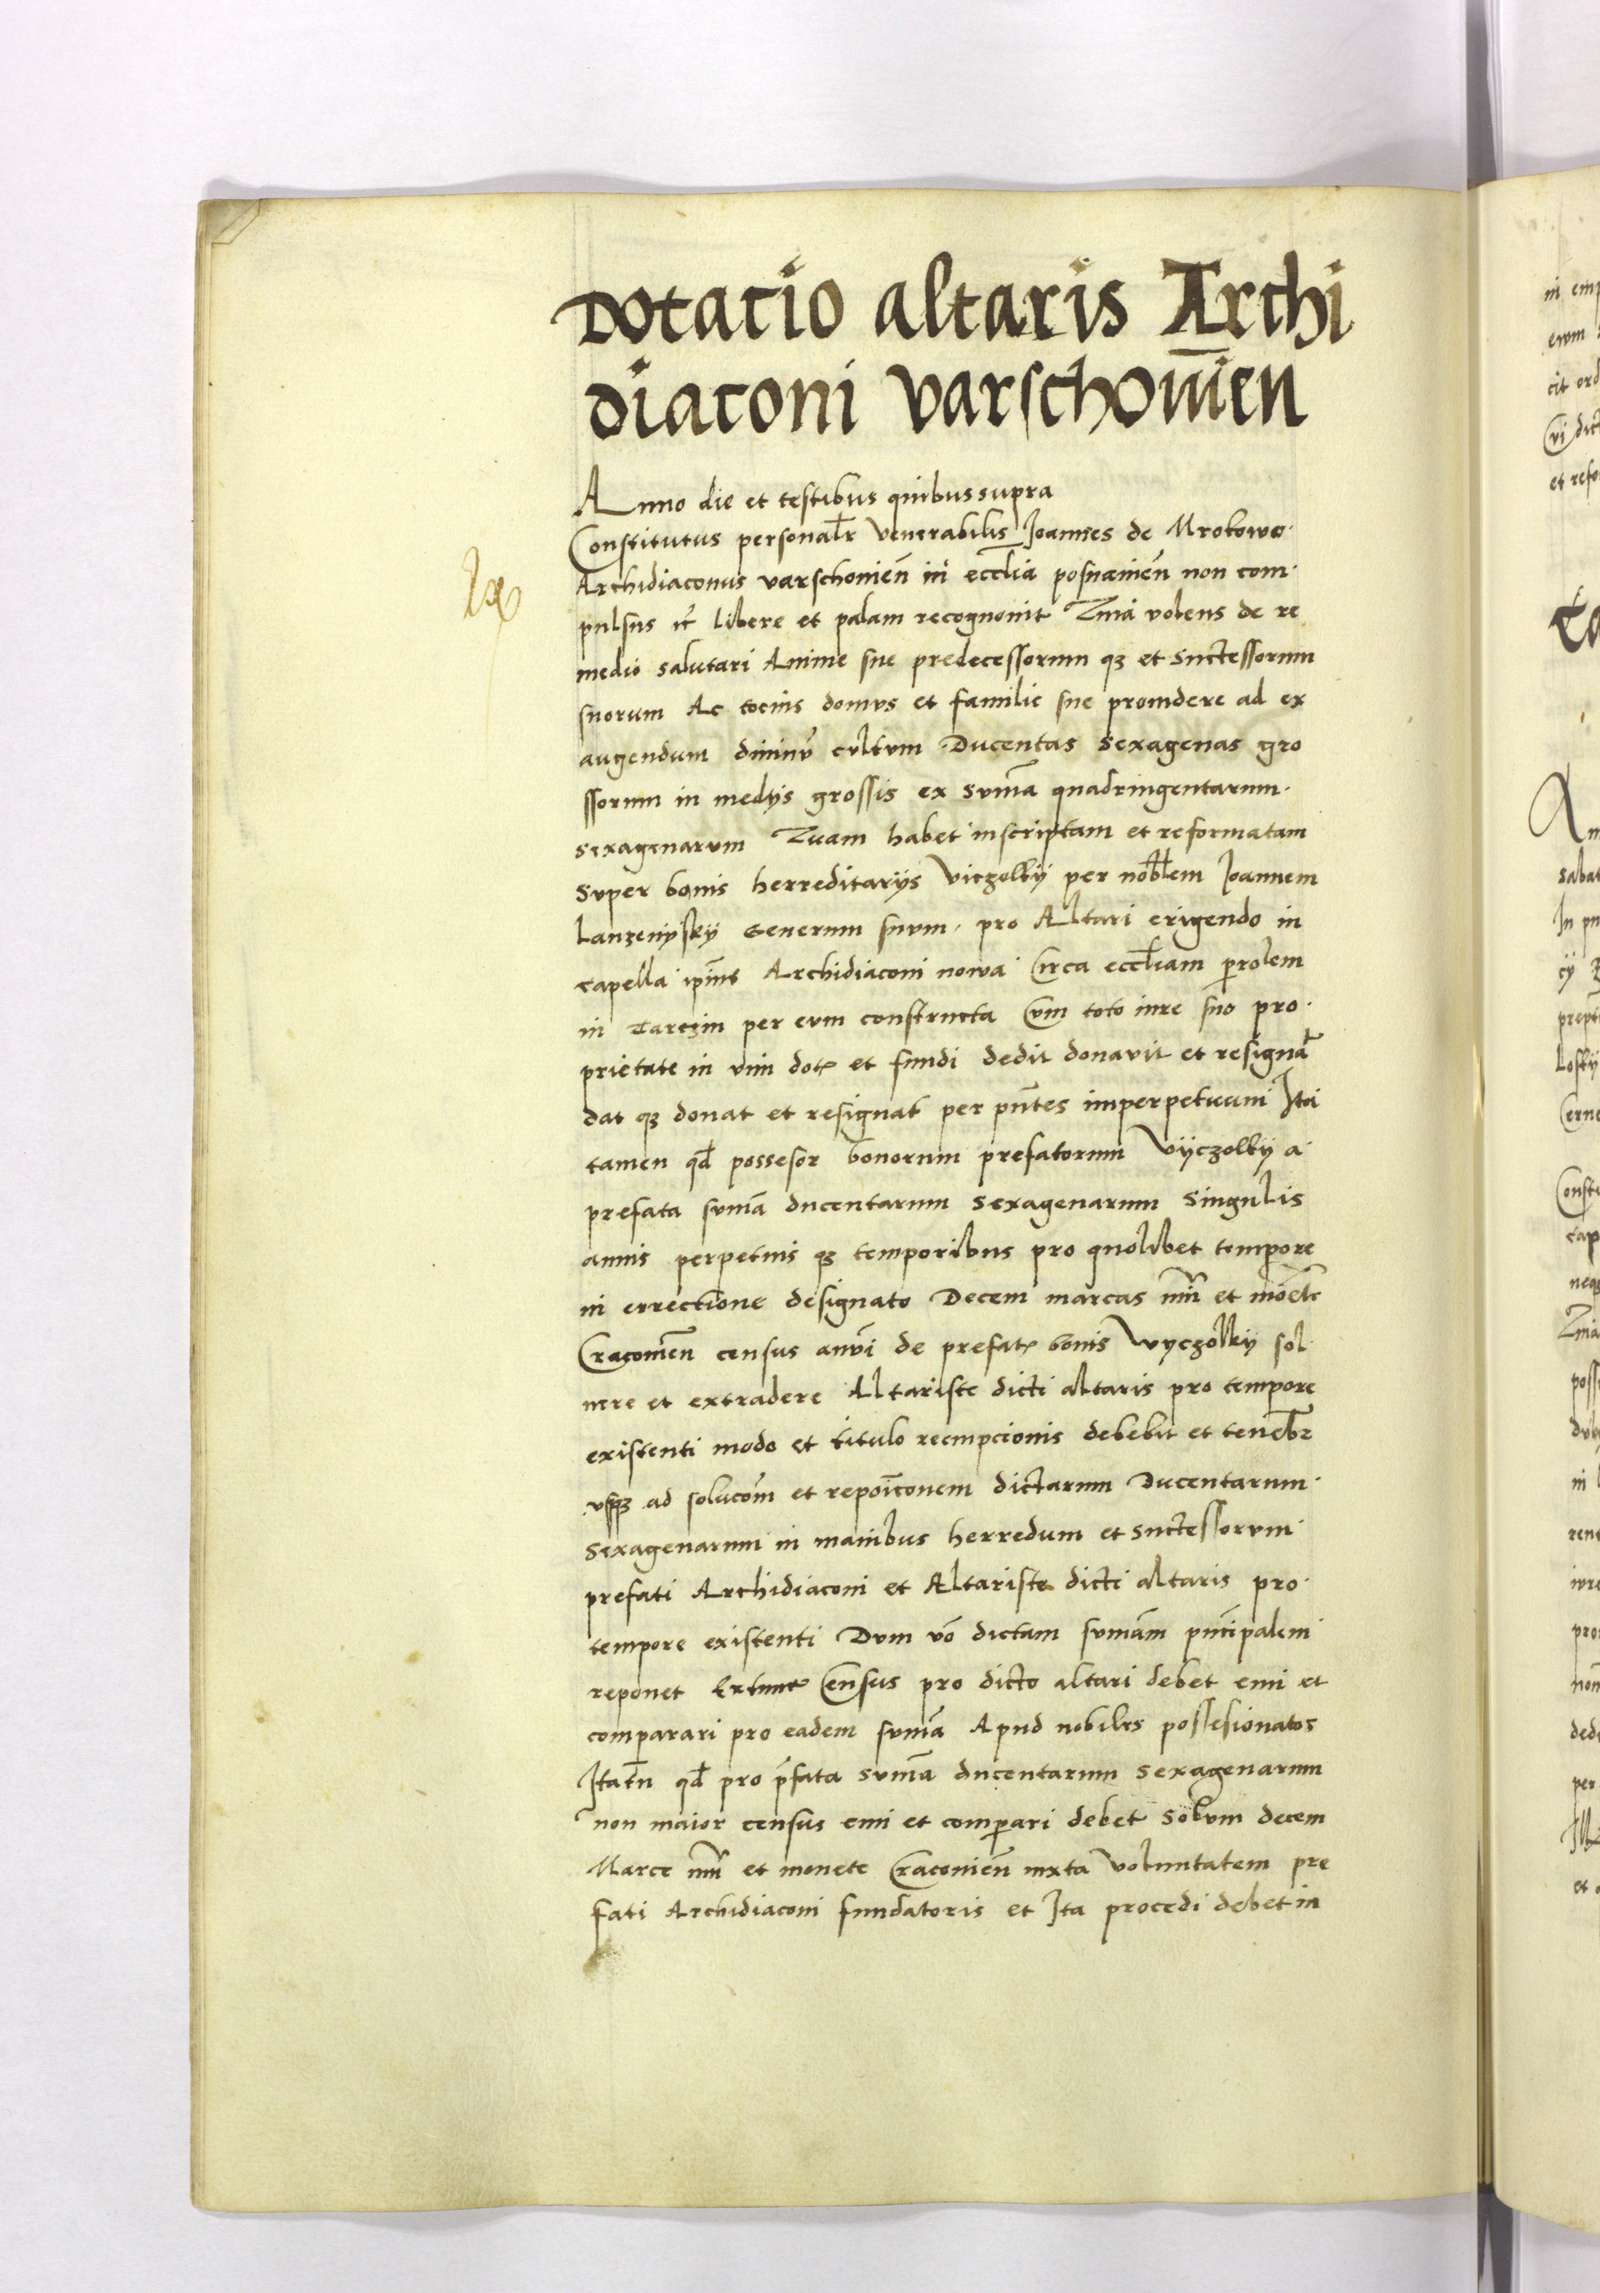 Dotacio altaris Archi
diaconi varschovien̄
Anno die et testibus quibus supra
Constitutus personalr̄ venerabilis Joannes de Mrokowo
Archidiaconus varschonien̄ in eccl̄ia posnanien̄ non com
pulsus libere et palam recognovit Quia volens de re
medio salutari Anime sue predecessorum qz et successorum
suorum Ac tocius domus et familie sue providere ad ex
augendum divinū cultum Ducentas sexagenas gro
ssorum in medijs grossis ex sum̄a quadringentarum
sexagenarum Quam habet inscriptam et reformatam
super bonis herreditarijs Viczolkij per nobl̄em Joannem
Lanzenijskij Generum suum pro Altari erigendo in
capella ip̄ius Archidiaconi nowa Circa eccl̄iam p̱rolem
in Tarczin per eum constructa Cum toto iure suo pro
prietate in vim dot̄ et fundi dedit donavit et resignāt
dat qz donat et resignat per pn̄tes imperpetuum Ita
tamen qd̄ possesor bonorum prefatorum Vijczolkij a
prefata sum̄a ducentarum sexagenarum singulis
annis perpetuis qz temporibus pro quolibet tempore
in errectione designato Decem marcas nūī et monēte
Cracovien̄ census anūi de prefat̄ bonis Wyczolkij sol
vere et extradere Altariste dicti altaris pro tempore
existenti modo et titulo reempcionis debebit et tenebr̄
usqz ad solucōm et repoīconem dictarum Ducentarum
sexagenarum in manibus herredum et successorum
prefati Archidiaconi et Altariste dicti altaris pro
tempore existenti Dum vō dictam sum̄am prn̄cipalem
reponet Extunc Census pro dicto altari debet emi et
comparari pro eadem sum̄a Apud nobiles possesionatos
Itatn̄ qd̄ pro p̄fata sum̄a ducentarum sexagenarum
non maior census emi et comparari debet solum decem
Marce nūī et monete Cracovien̄ iuxta voluntatem pre
fati Archidiaconi fundatoris et Ita procedi debet in